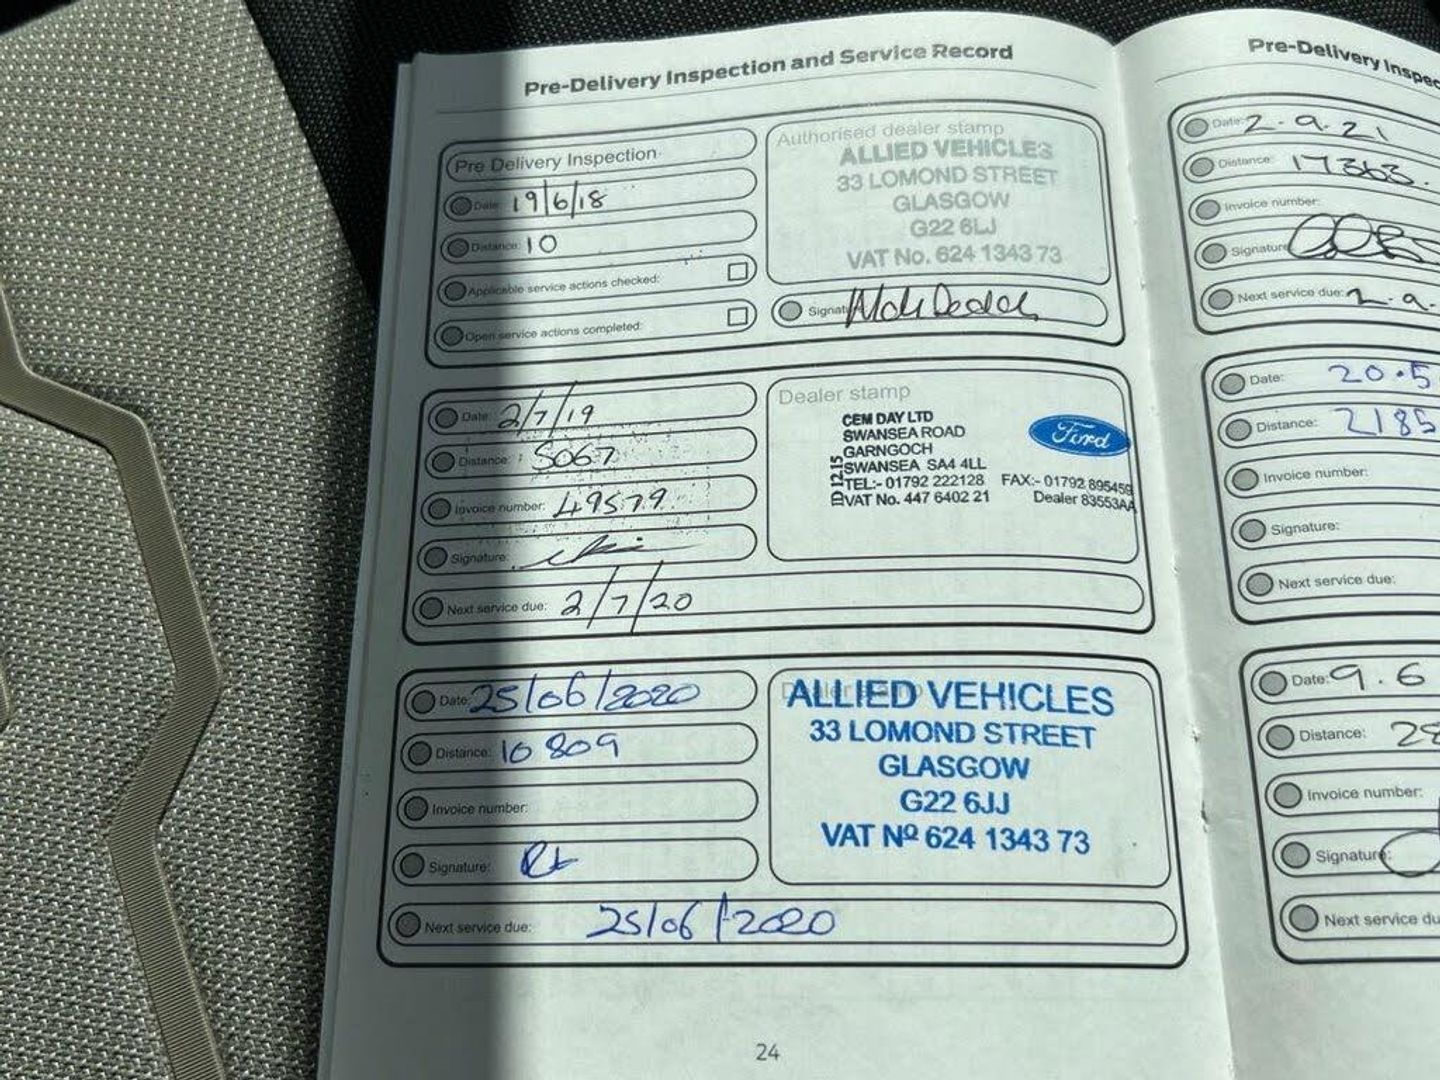 Pre-Delivery Inspection and Service Record
Pre Delivery Inspection
Date: 19/6/18
Distance: 10
Applicable service actions checked:
Open service actions completed:
Authorised dealer stamp
ALLIED VEHICLES
33 LOMOND STREET
GLASGOW
G22 6LJ
VAT No. 624 1343 73
Signat
Date: 2/7/19
Distance: 5067
Invoice number: 49579
Signature:
Next service due: 2/7/20
Dealer stamp
CEM DAY LTD
SWANSEA ROAD
GARNGOCH
SWANSEA SA4 4LL
TEL:- 01792 222128 FAX:- 01792 895459
VAT No. 447 6402 21 Dealer 83553AA
ID 12-15
Ford
Date: 25/06/2020
Distance: 10809
Invoice number:
Signature:
Next service due: 25/06/2020
Dealer stamp
ALLIED VEHICLES
33 LOMOND STREET
GLASGOW
G22 6JJ
VAT Nº 624 1343 73
24
Pre-Delivery Inspec
Date: 2.9.21
Distance: 17363.
Invoice number:
Signature
Next service due: 2.9.
Date: 20.5
Distance: 2185
Invoice number:
Signature:
Next service due:
Date: 9.6
Distance: 28
Invoice number:
Signature:
Next service du